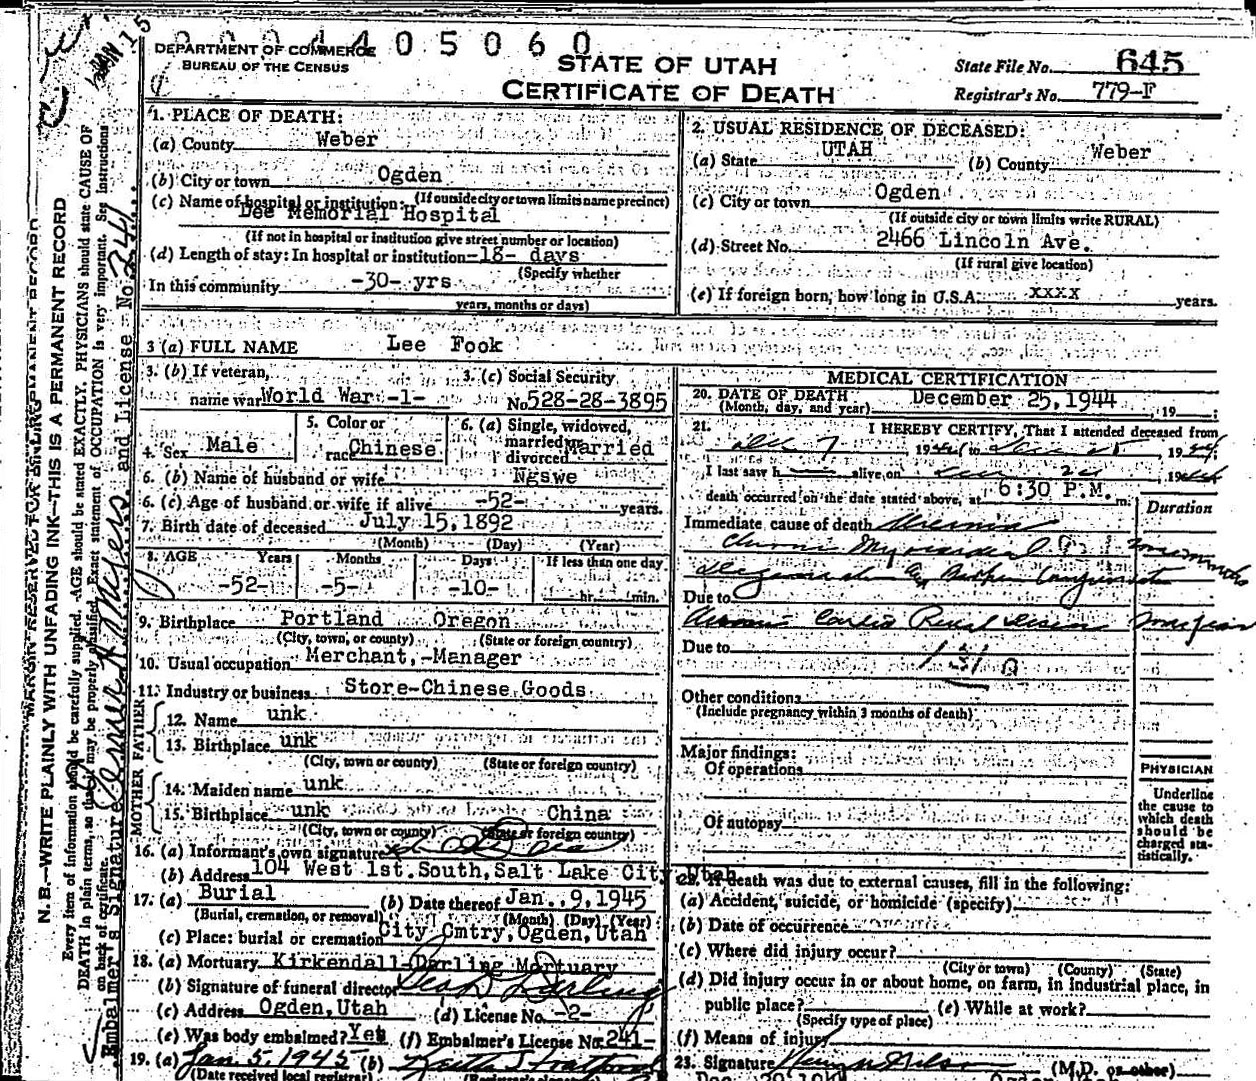 JAN 15
0004405060
DEPARTMENT OF COMMERCE
BUREAU OF THE CENSUS
STATE OF UTAH
CERTIFICATE OF DEATH
State File No. 645
Registrar's No. 779-F
1. PLACE OF DEATH:
(a) County Weber
(b) City or town Ogden
(If outside city or town limits name precinct)
(c) Name of hospital or institution:
Dee Memorial Hospital
(If not in hospital or institution give street number or location)
(d) Length of stay: In hospital or institution -18- days
(Specify whether
In this community -30- yrs
years, months or days)
2. USUAL RESIDENCE OF DECEASED:
(a) State UTAH (b) County Weber
(c) City or town Ogden
(If outside city or town limits write RURAL)
(d) Street No. 2466 Lincoln Ave.
(If rural give location)
(e) If foreign born, how long in U.S.A. xxxx years.
3 (a) FULL NAME Lee Fook
3. (b) If veteran,
name war World War -1-
3. (c) Social Security
No. 528-28-3895
4. Sex Male
5. Color or
race Chinese
6. (a) Single, widowed,
married,
divorced Married
6. (b) Name of husband or wife Ngswe
6. (c) Age of husband or wife if alive -52- years.
7. Birth date of deceased July 15, 1892
(Month) (Day) (Year)
8. AGE Years Months Days If less than one day
-52- -5- -10- hr. min.
9. Birthplace Portland Oregon
(City, town, or county) (State or foreign country)
10. Usual occupation Merchant,-Manager
11. Industry or business Store-Chinese Goods
FATHER
12. Name unk
13. Birthplace unk
(City, town or county) (State or foreign country)
MOTHER
14. Maiden name unk
15. Birthplace unk China
(City, town or county) (State or foreign country)
16. (a) Informant's own signature
(b) Address 104 West 1st. South, Salt Lake City, Utah
17. (a) Burial (b) Date thereof Jan. 9, 1945
(Burial, cremation, or removal) (Month) (Day) (Year)
(c) Place: burial or cremation City Cmtry, Ogden, Utah
18. (a) Mortuary Kirkendall-Darling Mortuary
(b) Signature of funeral director Darling
(c) Address Ogden, Utah (d) License No. -2-
(e) Was body embalmed? Yes (f) Embalmer's License No. 241-
19. (a) Jan 5 1945 (b)
(Date received local registrar)
MEDICAL CERTIFICATION
20. DATE OF DEATH
(Month, day, and year) December 25, 1944, 19
21. I HEREBY CERTIFY, That I attended deceased from
Dec 7 1944 to Dec 25 1944
I last saw h alive on Dec 24 1944
death occurred on the date stated above, at 6:30 P.M. m.
Duration
Immediate cause of death Uremia
Chronic Myocardial
Due to
Chronic Cardio Renal disease
Due to
131 a
Other conditions
(Include pregnancy within 3 months of death)
Major findings:
Of operations
Of autopsy
PHYSICIAN
Underline
the cause to
which death
should be
charged sta-
tistically.
22. If death was due to external causes, fill in the following:
(a) Accident, suicide, or homicide (specify)
(b) Date of occurrence
(c) Where did injury occur?
(City or town) (County) (State)
(d) Did injury occur in or about home, on farm, in industrial place, in
public place? (e) While at work?
(Specify type of place)
(f) Means of injury
23. Signature (M.D. or other)
MARGIN RESERVED FOR BINDING
N. B.—WRITE PLAINLY WITH UNFADING INK—THIS IS A PERMANENT RECORD
Every item of information should be carefully supplied. AGE should be stated EXACTLY. PHYSICIANS should state CAUSE OF
DEATH in plain terms, so that it may be properly classified. Exact statement of OCCUPATION is very important. See instructions
on back of certificate.
Embalmer's Signature Myers and License No. 241